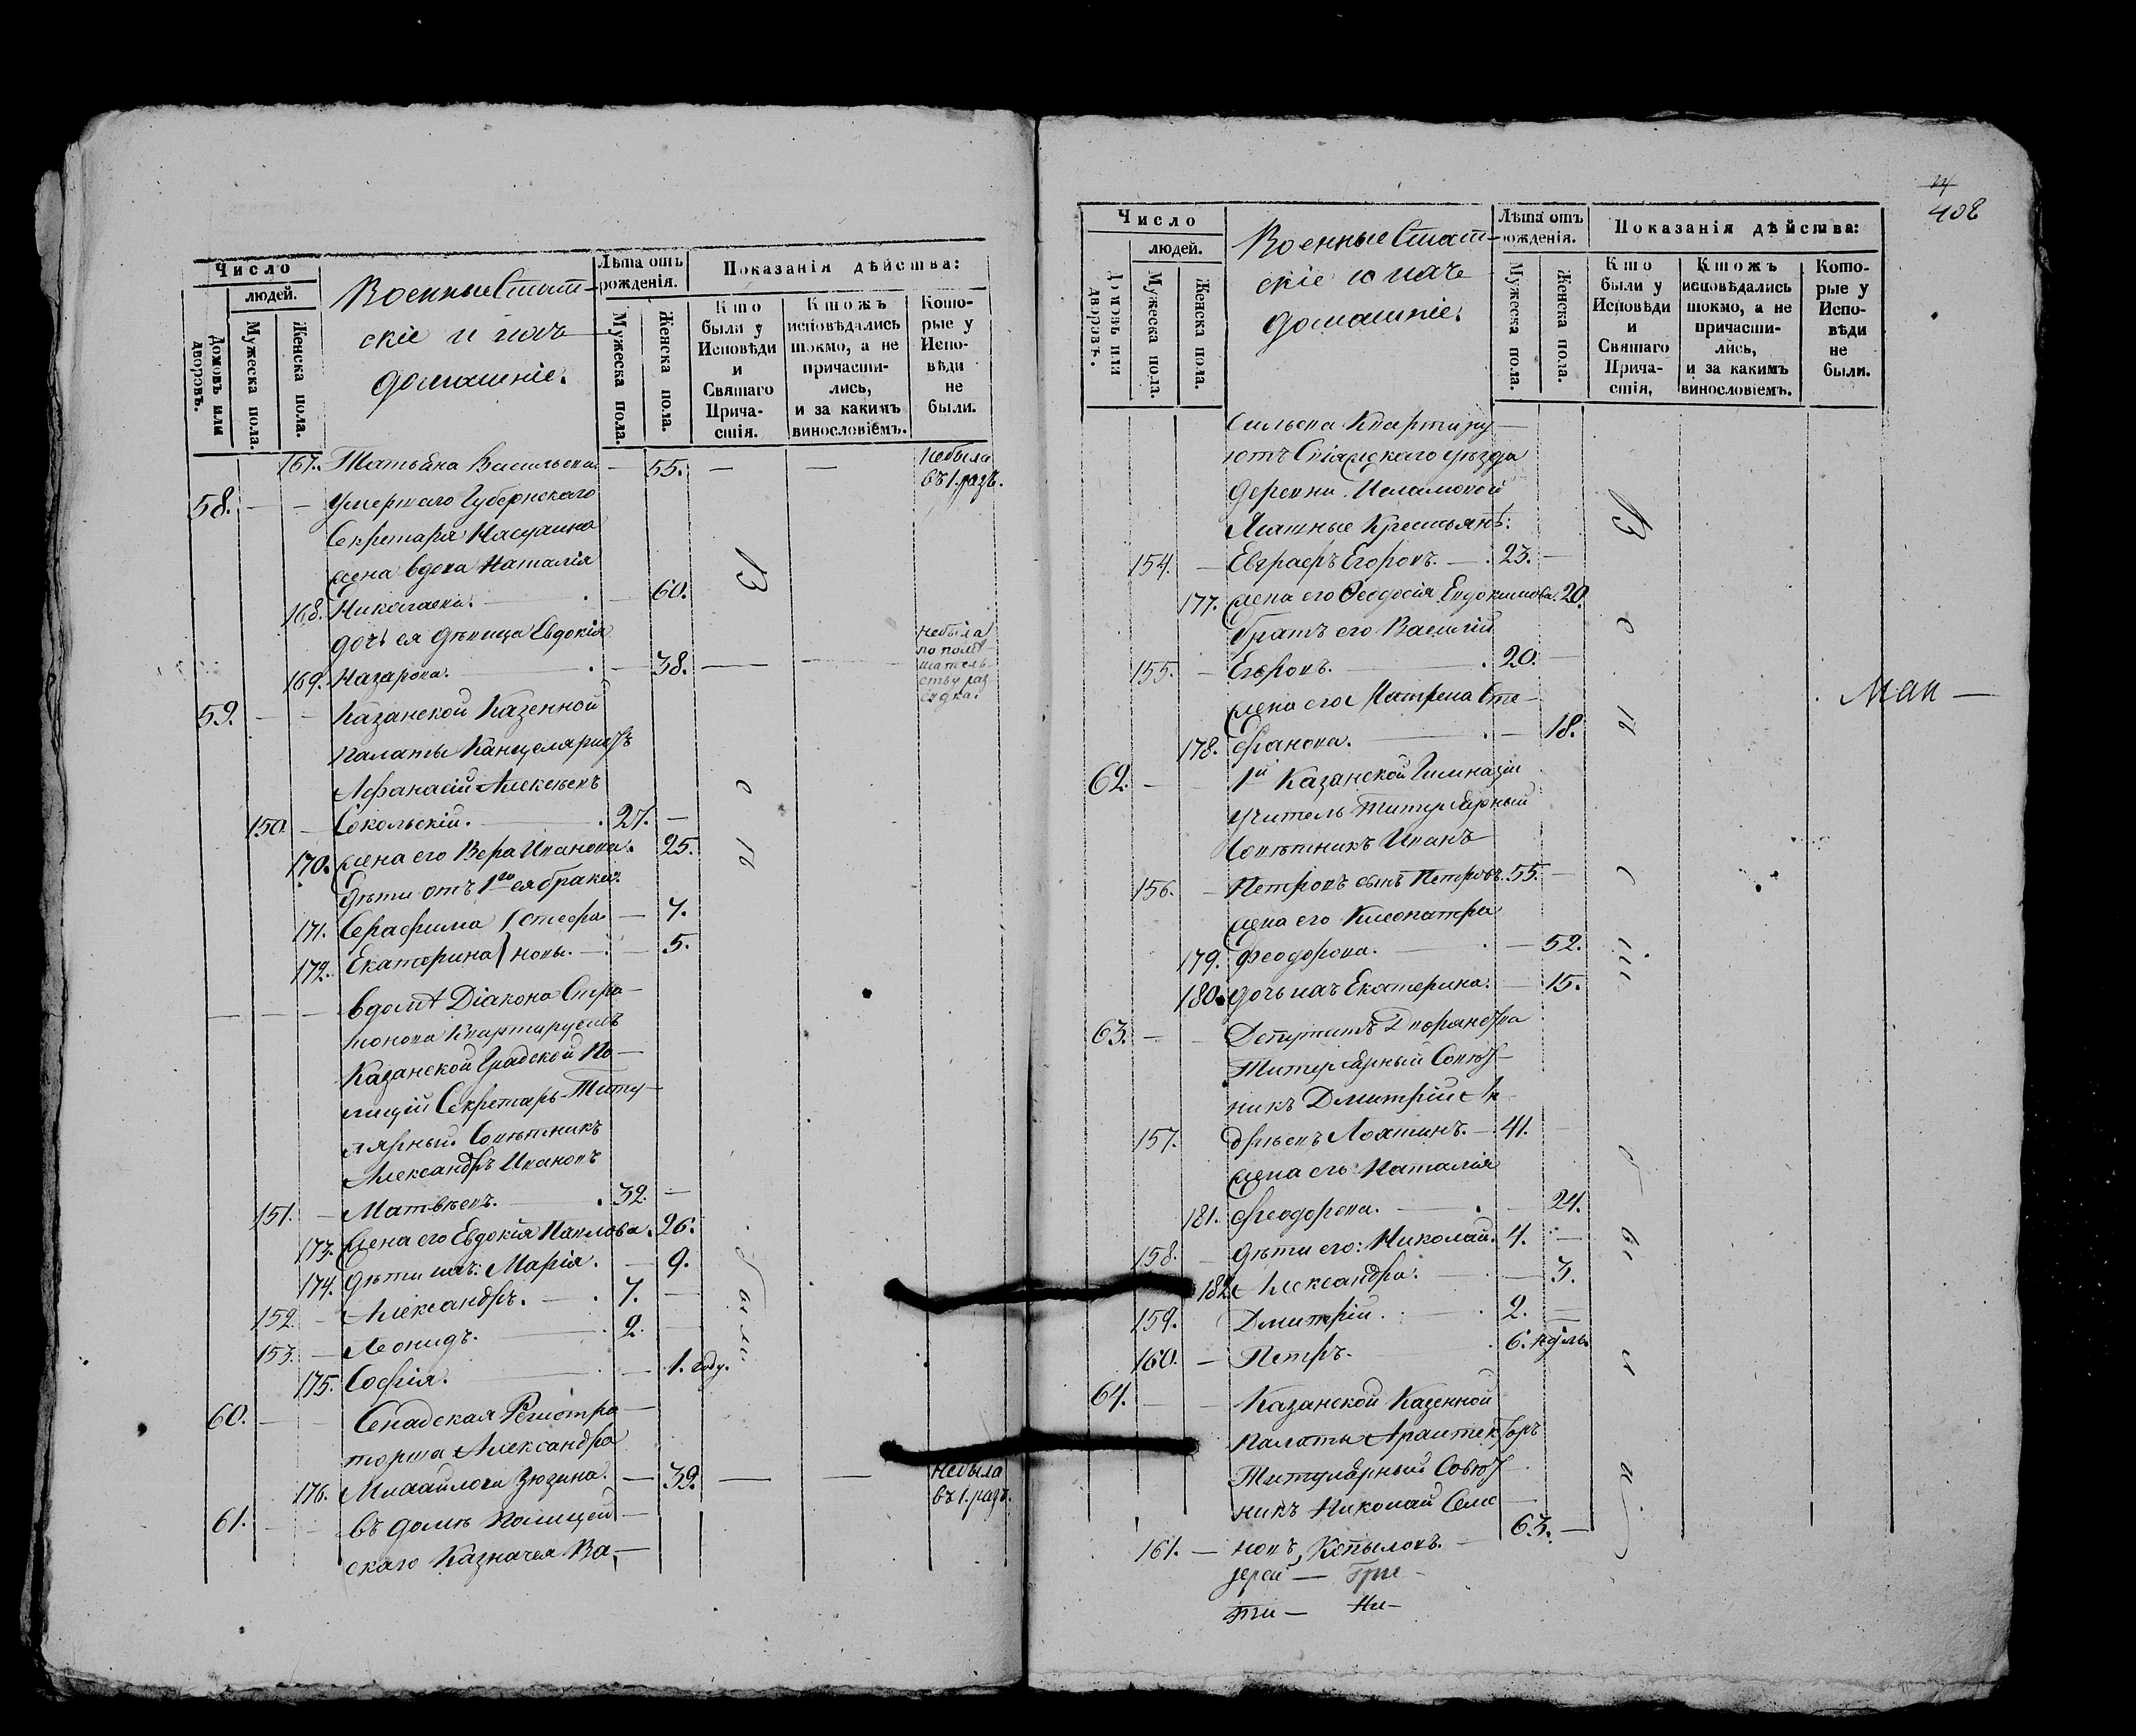 Число
людей.
Домовъ или дворовъ.
Мужеска пола.
Женска пола.
Военные Стат-
скіе и ихъ
домашніе.
Лѣта отъ рожденія.
Мужеска пола.
Женска пола.
Показанія дѣйства:
Кто были у Исповѣди и Святаго Прича-стія.
Ктожъ исповѣдались токмо, а не причасти-лись, и за какимъ винословіемъ.
Кото-рые у Испо-вѣди не были.
167. Татьяна Васильева — 55. — — небыла въ 1. разъ.
58. — — умершаго Губернскаго
Секретаря
жена вдова Наталія
168. Николаева. — 60.
дочь ея дѣвица Евдокія
169. Назарова. — 38. — — небыла по
59. — — Казанской Казенной
Палаты Канцеляристъ
Афанасій Алексѣевъ
150. — Сокольскій. 27. —
170. жена его Вера Иванова. 25.
дѣти отъ 1го ея брака:
171. Серафима } Стефа — 7.
172. Екатерина } новы. — 5.
— — — вдомѣ Діакона
Квартируетъ
Казанской Градской По-
лиціи Секретарь Титу-
лярный Совѣтникъ
Александръ Ивановъ
151. — Матвѣевъ. 32. —
173. жена его Евдокія Павлова. 26.
174. дѣти ихъ: Марія. — 9.
152. — Александръ. 7. —
153. — Леонидъ. 2. —
175. Софія. — 1. году.
60. — — Сенадская Регистра-
торша Александра
176. Михайлова Зюзина. — 39. — — небыла въ 1. разъ.
61. — — въ домѣ Полицей-
скаго Казначея Ва-
В с ѣ
были
408
Число
людей.
Домовъ или дворовъ.
Мужеска пола.
Женска пола.
Военные Стат-
скіе и ихъ
домашніе.
Лѣта отъ рожденія.
Мужеска пола.
Женска пола.
Показанія дѣйства:
Кто были у Исповѣди и Святаго Прича-стія.
Ктожъ исповѣдались токмо, а не причасти-лись, и за какимъ винословіемъ.
Кото-рые у Испо-вѣди не были.
сильева Квартиру-
ютъ Спаскаго уѣзда
деревни
Крестьянѣ:
154. — Евграфъ Егоровъ. 23. —
177. жена его Феодосія Евдокимова. 20.
братъ его Василій
155. — Егоровъ. 20. —
жена его Матрена Сте-
178. фанова. — 18.
62. — — 1й Казанской Гимназіи
учитель Титулярный
Совѣтникъ Иванъ
156. — Петровъ сынъ Петровъ. 55. —
жена его Клеопатра
179. Феодорова. — 52.
180. дочь ихъ Екатерина. — 15.
63. — — Депутатъ Дворянства
Титулярный Совѣт-
никъ Дмитрій Ан-
157. дрѣевъ 41. —
жена его Наталія
181. Феодорова. — 24.
158. — дѣти его: Николай. 4. —
182. Александра. — 3.
159. Дмитрій. 2. —
160. — Петръ. 6. нѣдѣль.
64. — — Казанской Казенной
Палаты Архитекторъ
Титулярный Совѣт-
никъ Николай Семе-
161. — новъ, Копыловъ. 63. —
іерей —